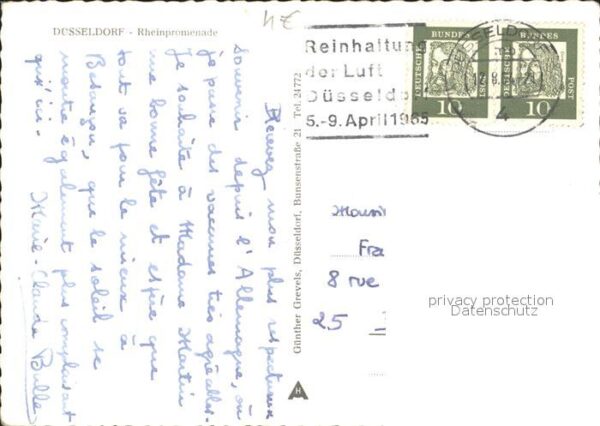 DÜSSELDORF - Rheinpromenade
4€
Recevez mon plus respectueux
souvenir depuis l'Allemagne, où
je passe des vacances très agréables.
Je souhaite à Madame Martin
une bonne fête et espère que
tout va pour le mieux à
Besançon, que le soleil se
montre également plus complaisant
qu'ici.
Marie-Claude
Günther Grevels, Düsseldorf, Bunsenstraße 21 Tel. 24772
H
Reinhaltung
der Luft
Düsseldo
5.-9. April 1965
DÜSSELDO
4
DEUTSCHE BUNDESPOST
10
DEUTSCHE BUNDESPOST
10
Monsi
Fra
8 rue
25
privacy protection
Datenschutz